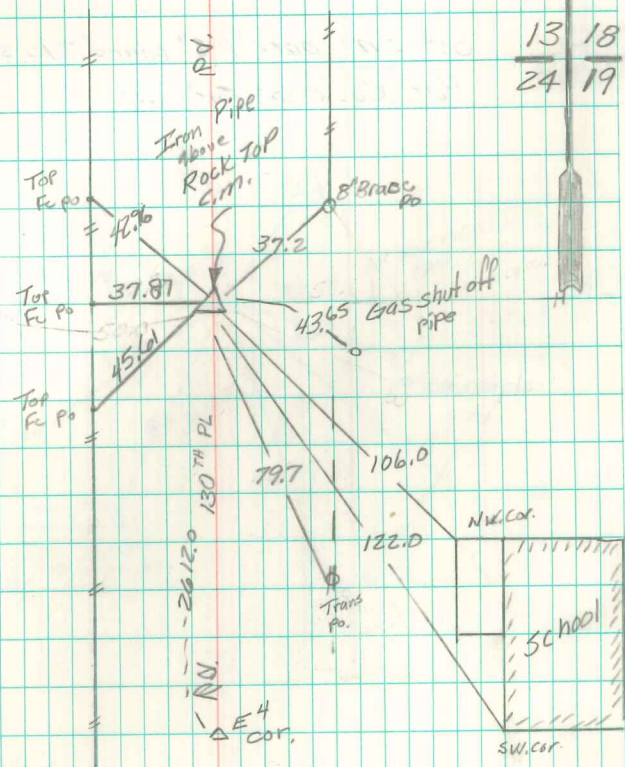 13 18
24 19
Rd.
Iron Pipe
above
Rock Top
C.M.
Top
Fc po
42.96
8" Brace
po
37.2
Top
Fc po
37.87
43.65
Gas shut off
pipe
Top
Fc po
45.61
130TH PL
79.7
106.0
122.0
N.W. Cor.
2612.0
Trans
po.
School
Rd.
E 4
cor.
SW. cor.
N